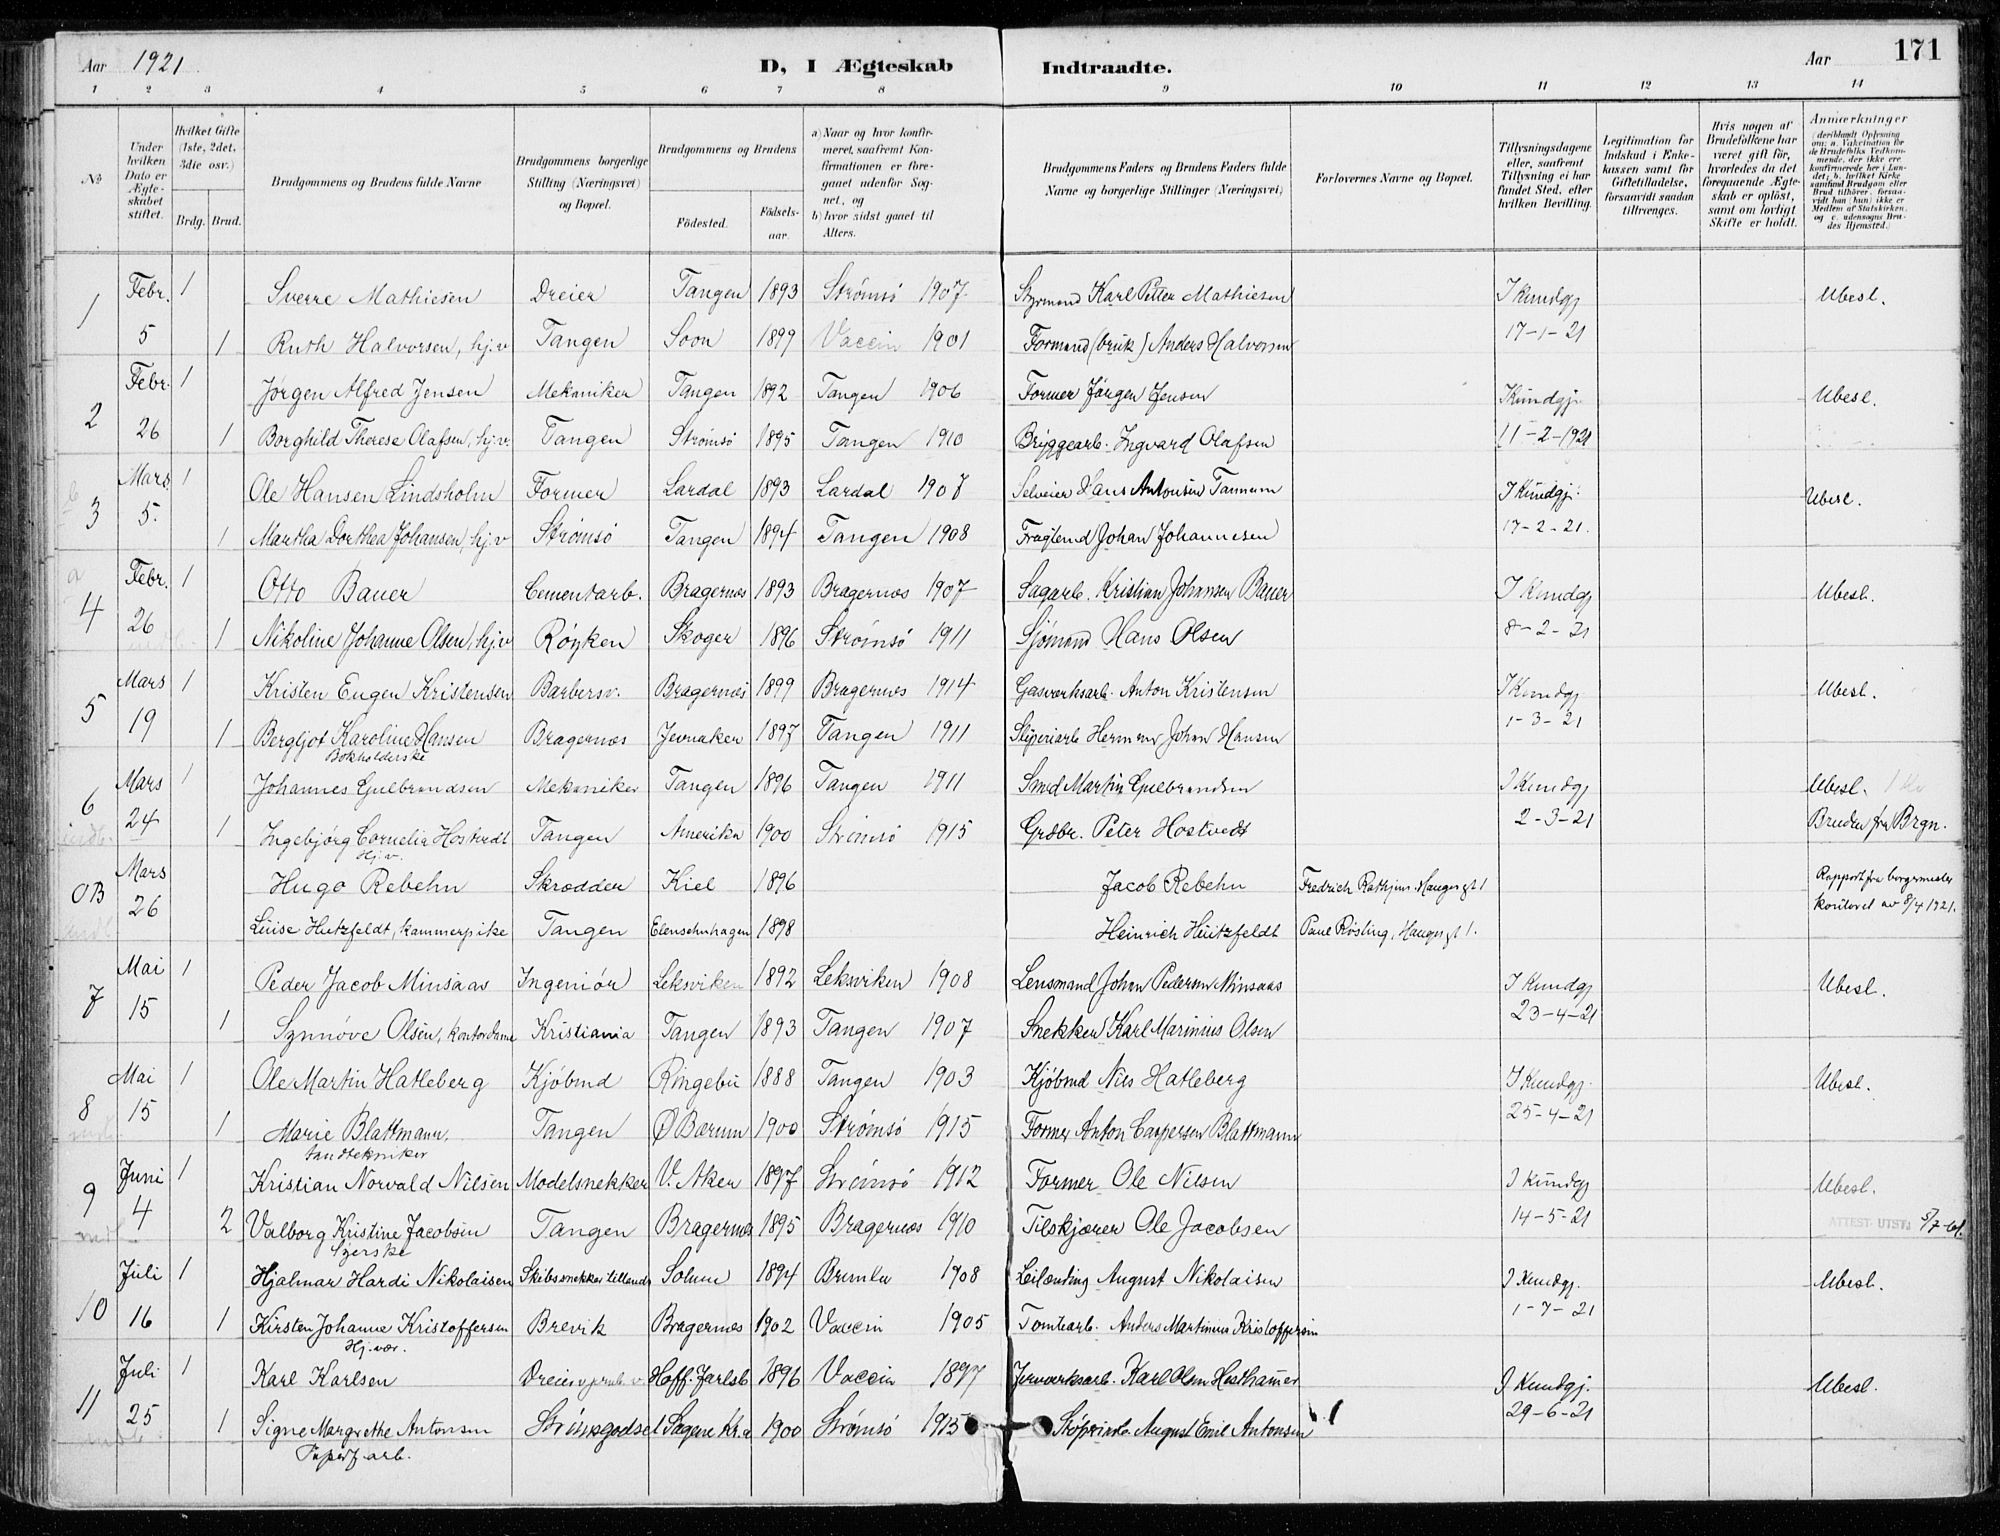 Aar 1921
D, I Ægteskab Indtraadte.
Aar 171
1 2 3 4 5 6 7 8 9 10 11 12 13 14
No
Under hvilken Dato er Ægteskabet stiftet.
Hvilket Gifte (1ste, 2det, 3die osv.)
Brdg. Brud.
Brudgommens og Brudens fulde Navne
Brudgommens borgerlige Stilling (Næringsvei) og Bopæl.
Brudgommens og Brudens
Födested. Födselsaar.
a) Naar og hvor konfirmeret, saafremt Konfirmationen er foregaaet udenfor Sognet, og
b) hvor sidst gaaet til Alters.
Brudgommens Faders og Brudens Faders fulde Navne og borgerlige Stillinger (Næringsvei)
Forlovernes Navne og Bopæl.
Tillysningsdagene eller, saafremt Tillysning ei har fundet Sted, efter hvilken Bevilling.
Legitimation for Indskud i Enkekassen samt for Giftetilladelse, forsaavidt saadan tiltrænges.
Hvis nogen af Brudefolkene har været gift før, hvorledes da det foregaaende Ægteskab er oplöst, samt om lovligt Skifte er holdt.
Anmærkninger (deriblandt Oplysning om: a. Vakcination for de Brudefolks Vedkommende, der ikke ere konfirmerede her i Landet; b. hvilket Kirkesamfund Brudgom eller Brud tilhörer, forsaavidt han (hun) ikke er Medlem af Statskirken, og c. udensogns Brudes Hjemsted.)
1 Febr. 1 Sverre Mathiesen Dreier Tangen 1893 Strømsø 1907 Styrmand Karl Petter Mathiesen I Kundgj Ubesl.
5 1 Ruth Halvorsen, hj.v Tangen Soon 1899 Vaccin 1901 Formand (bruk) Anders Halvorsen 17-1-21
2 Febr. 1 Jørgen Alfred Jensen Mekaniker Tangen 1892 Tangen 1906 Former Jørgen Jensen I Kundgj. Ubesl.
26 1 Borghild Therese Olafsen, hj.v. Tangen Strømsø 1895 Tangen 1910 Bryggearb. Ingvard Olafsen 11-2-1921
3 Mars 1 Ole Hansen Lindsholm Former Lardal 1893 Lardal 1907 Selveier Hans Antonsen Tannum I Kundgj. Ubesl.
5. 1 Martha Dorthea Johansen, hj.v Strømsø Tangen 1894 Tangen 1908 Fragtemd Johan Johannesen 17-2-21.
4 Febr. 1 Otto Bauer Cementarb. Bragernæs 1893 Bragernæs 1907 Sagarb. Kristian Johansen Bauer I Kundgj Ubesl.
26 1 Nikoline Johanne Olsen, hj.v Røyken Skoger 1896 Strømsø 1911 Sjømand Hans Olsen 8-2-21
5 Mars 1 Kristen Eugen Kristensen Barbersv. Bragernæs 1899 Bragernæs 1914 Gasverksarb. Anton Kristensen I Kundgj Ubesl.
19 1 Bergljot Karoline Hansen Bragernæs Jevnaker 1897 Tangen 1911 Sliperiarb Herman Johan Hansen 1-3-21
Bokholderske
6 Mars 1 Johannes Gulbrandsen Mekaniker Tangen 1896 Tangen 1911 Smed Martin Gulbrandsen I Kundgj Ubesl.
24 1 Ingebjørg Cornelia Hostvedt Tangen Amerika 1900 Strømsø 1915 Grdbr. Peter Hostvedt 2-3-21 Bruden fra Brgn.
Hj.v.
OB Mars Hugo Rebehn Skrædder Kiel 1896 Jacob Rebehn Fredrich Rathjens, Haugesgt 1 Rapport fra borgermester
26 Luise Hutzfeldt, kammerpike Tangen Elensehnhagen 1898 Heinrich Hützfeldt Paul Røsling, Haugesgt 1. kontoret av 8/4 1921.
7 Mai 1 Peder Jacob Minsaas Ingeniør Leksviken 1892 Leksviken 1908 Lensmand Johan Pedersen Minsaas I Kundgj Ubesl.
15 1 Synnøve Olsen, kontordame Kristiania Tangen 1893 Tangen 1907 Snekker Karl Marinius Olsen 23-4-21
8 Mai 1 Ole Martin Hatleberg Kjøbmd Ringebu 1888 Tangen 1903 Kjøbmd Nils Hatleberg I Kundgj. Ubesl.
15 1 Marie Blattmann Tangen Ø Bærum 1900 Strømsø 1915 Former Anton Caspersen Blattmann 25-4-21
Tandtekniker
9 Juni 1 Kristian Norvald Nilsen Modelsnekker V. Aker 1897 Strømsø 1912 Former Ole Nilsen I Kundgj Ubesl.
4 2 Valborg Kristine Jacobsen Tangen Bragernæs 1895 Bragernæs 1910 Tilskjærer Ole Jacobsen 14-5-21 ATTEST. UTST.
Syerske
10 Juli 1 Hjalmar Hardi Nikolaisen Skibssnekker tillands Solum 1894 Brunla 1908 Leilænding August Nikolaisen I Kundgj. Ubesl.
16 1 Kirsten Johanne Kristoffersen Brevik Bragernæs 1902 Vaccin 1905 Tomtearb. Anders Martinius Kristoffersen 1-7-21
Hj.vær.
11 Juli 1 Karl Karlsen Hoff. Jarlsb 1896 Vaccin 1897 Jernverksarb. Karl Olsen I Kundgj. Ubesl.
25 1 Signe Margrethe Antonsen Strømsgodset Sagene Kr.a 1900 Strømsø 1915 August Emil Antonsen 29-6-21
Papirf.arb.